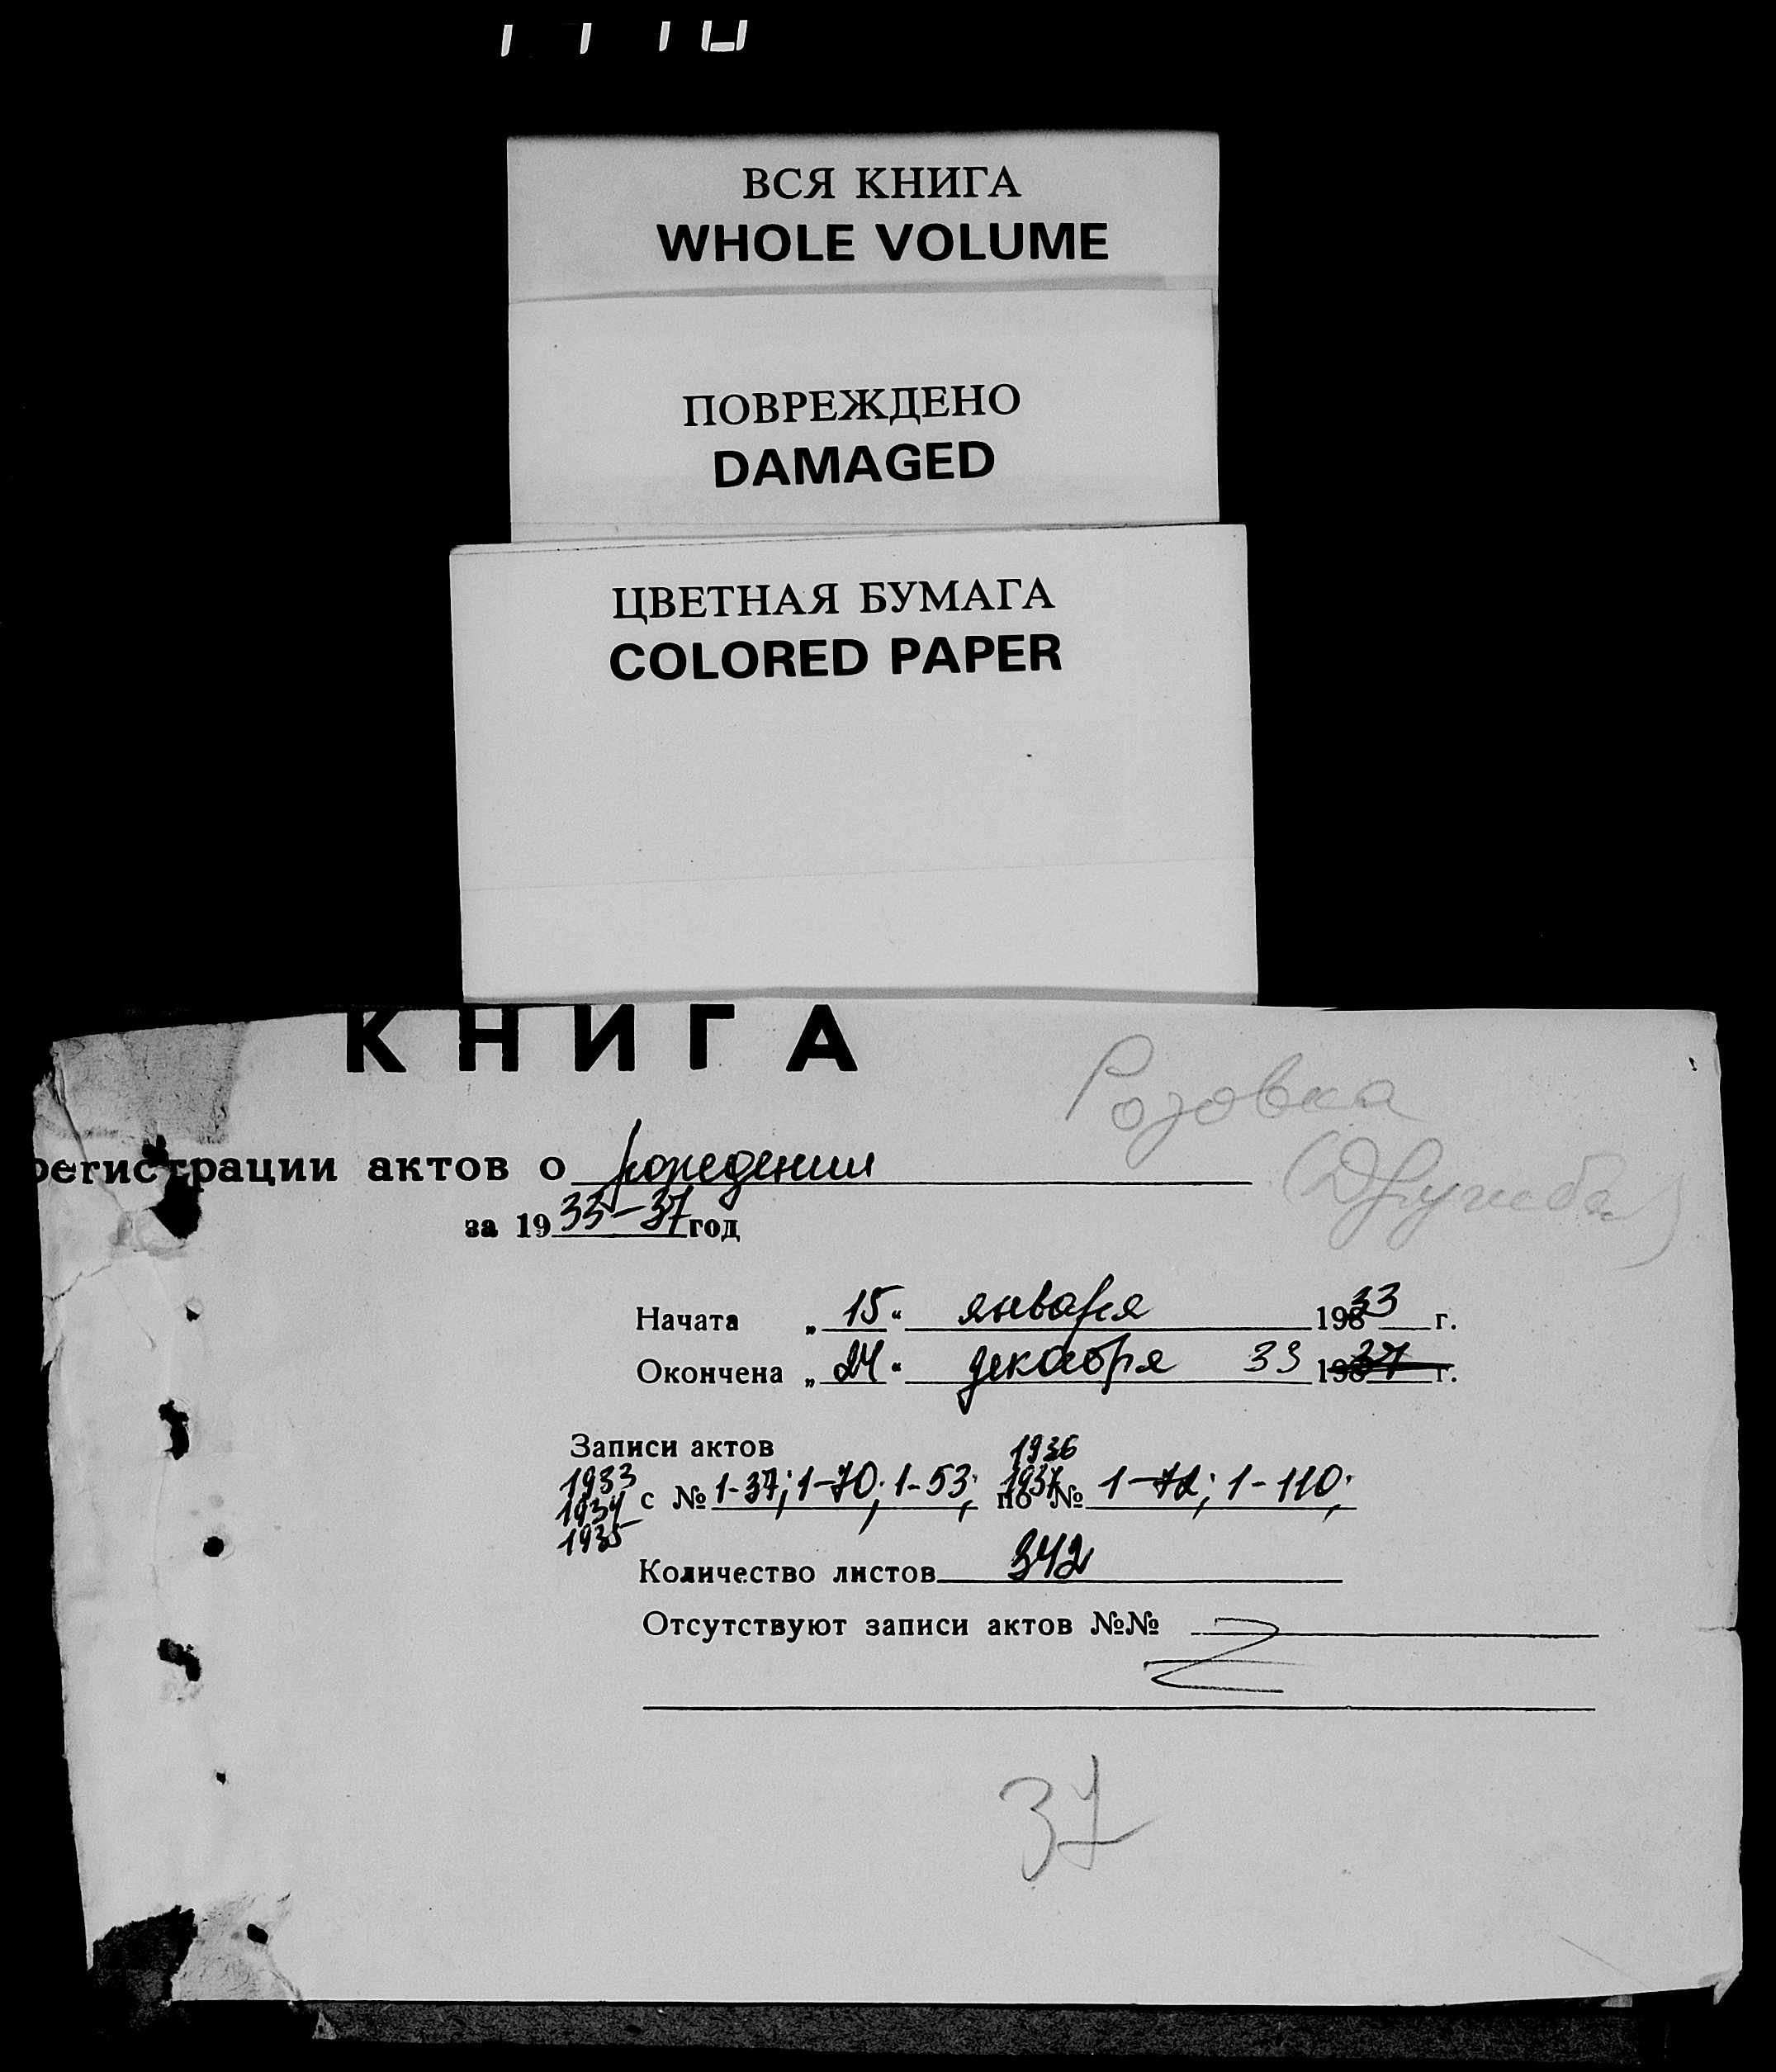 ВСЯ КНИГА
WHOLE VOLUME
ПОВРЕЖДЕНО
DAMAGED
ЦВЕТНАЯ БУМАГА
COLORED PAPER
КНИГА
Розовка
(Дружба)
регистрации актов о рождении
за 1933-37 год
Начата „15“ января 1933 г.
Окончена „24“ декабря 33 1937 г.
Записи актов 1936
1933 1937
1934 с № 1-37; 1-70; 1-53; по № 1-72; 1-110;
1935
Количество листов 342
Отсутствуют записи актов №№
37